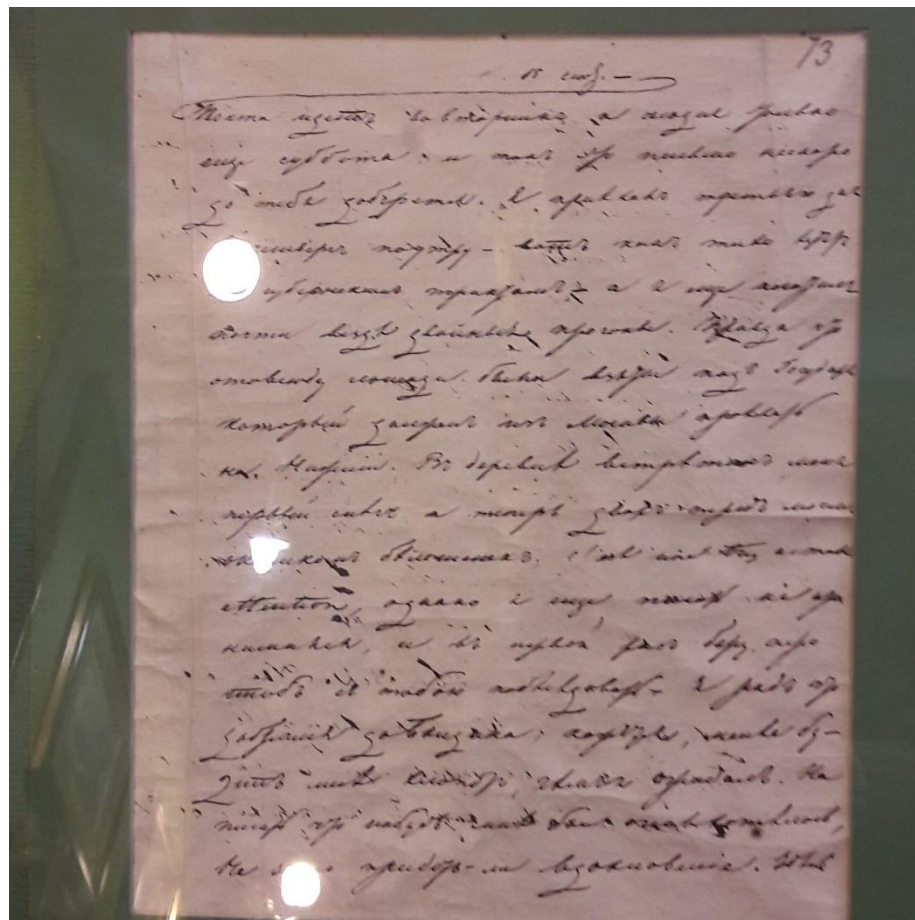 73
15 сент. —
Почта идетъ во вторникъ, а сегодня только
еще суббота; и такъ это письмо нескоро
до тебя доберется. Я пріѣхалъ третьяго дня
четвергъ поутру — вотъ какъ тихо
губернскимъ трактамъ — а я еще платилъ
почти вездѣ двойные прогоны. Правда что
отовсюду лошади были взяты подъ Государя
который долженъ изъ Москвы проѣхать
на Нижній. Въ деревнѣ встрѣтилъ меня
первый снегъ а теперь дворъ передъ моимъ
бѣлешенекъ; c'est une très aimable
attention, однако я еще писать не при
нимался, и въ первой разъ беру перо
чтобъ съ тобою побесѣдовать. Я радъ что
добрался до Болдина; кажется, менѣе бу-
детъ мнѣ хлопотъ, чемъ я ожидалъ. На
писать что нибудь мнѣ бы очень хотелось,
Не придетъ-ли вдохновеніе.